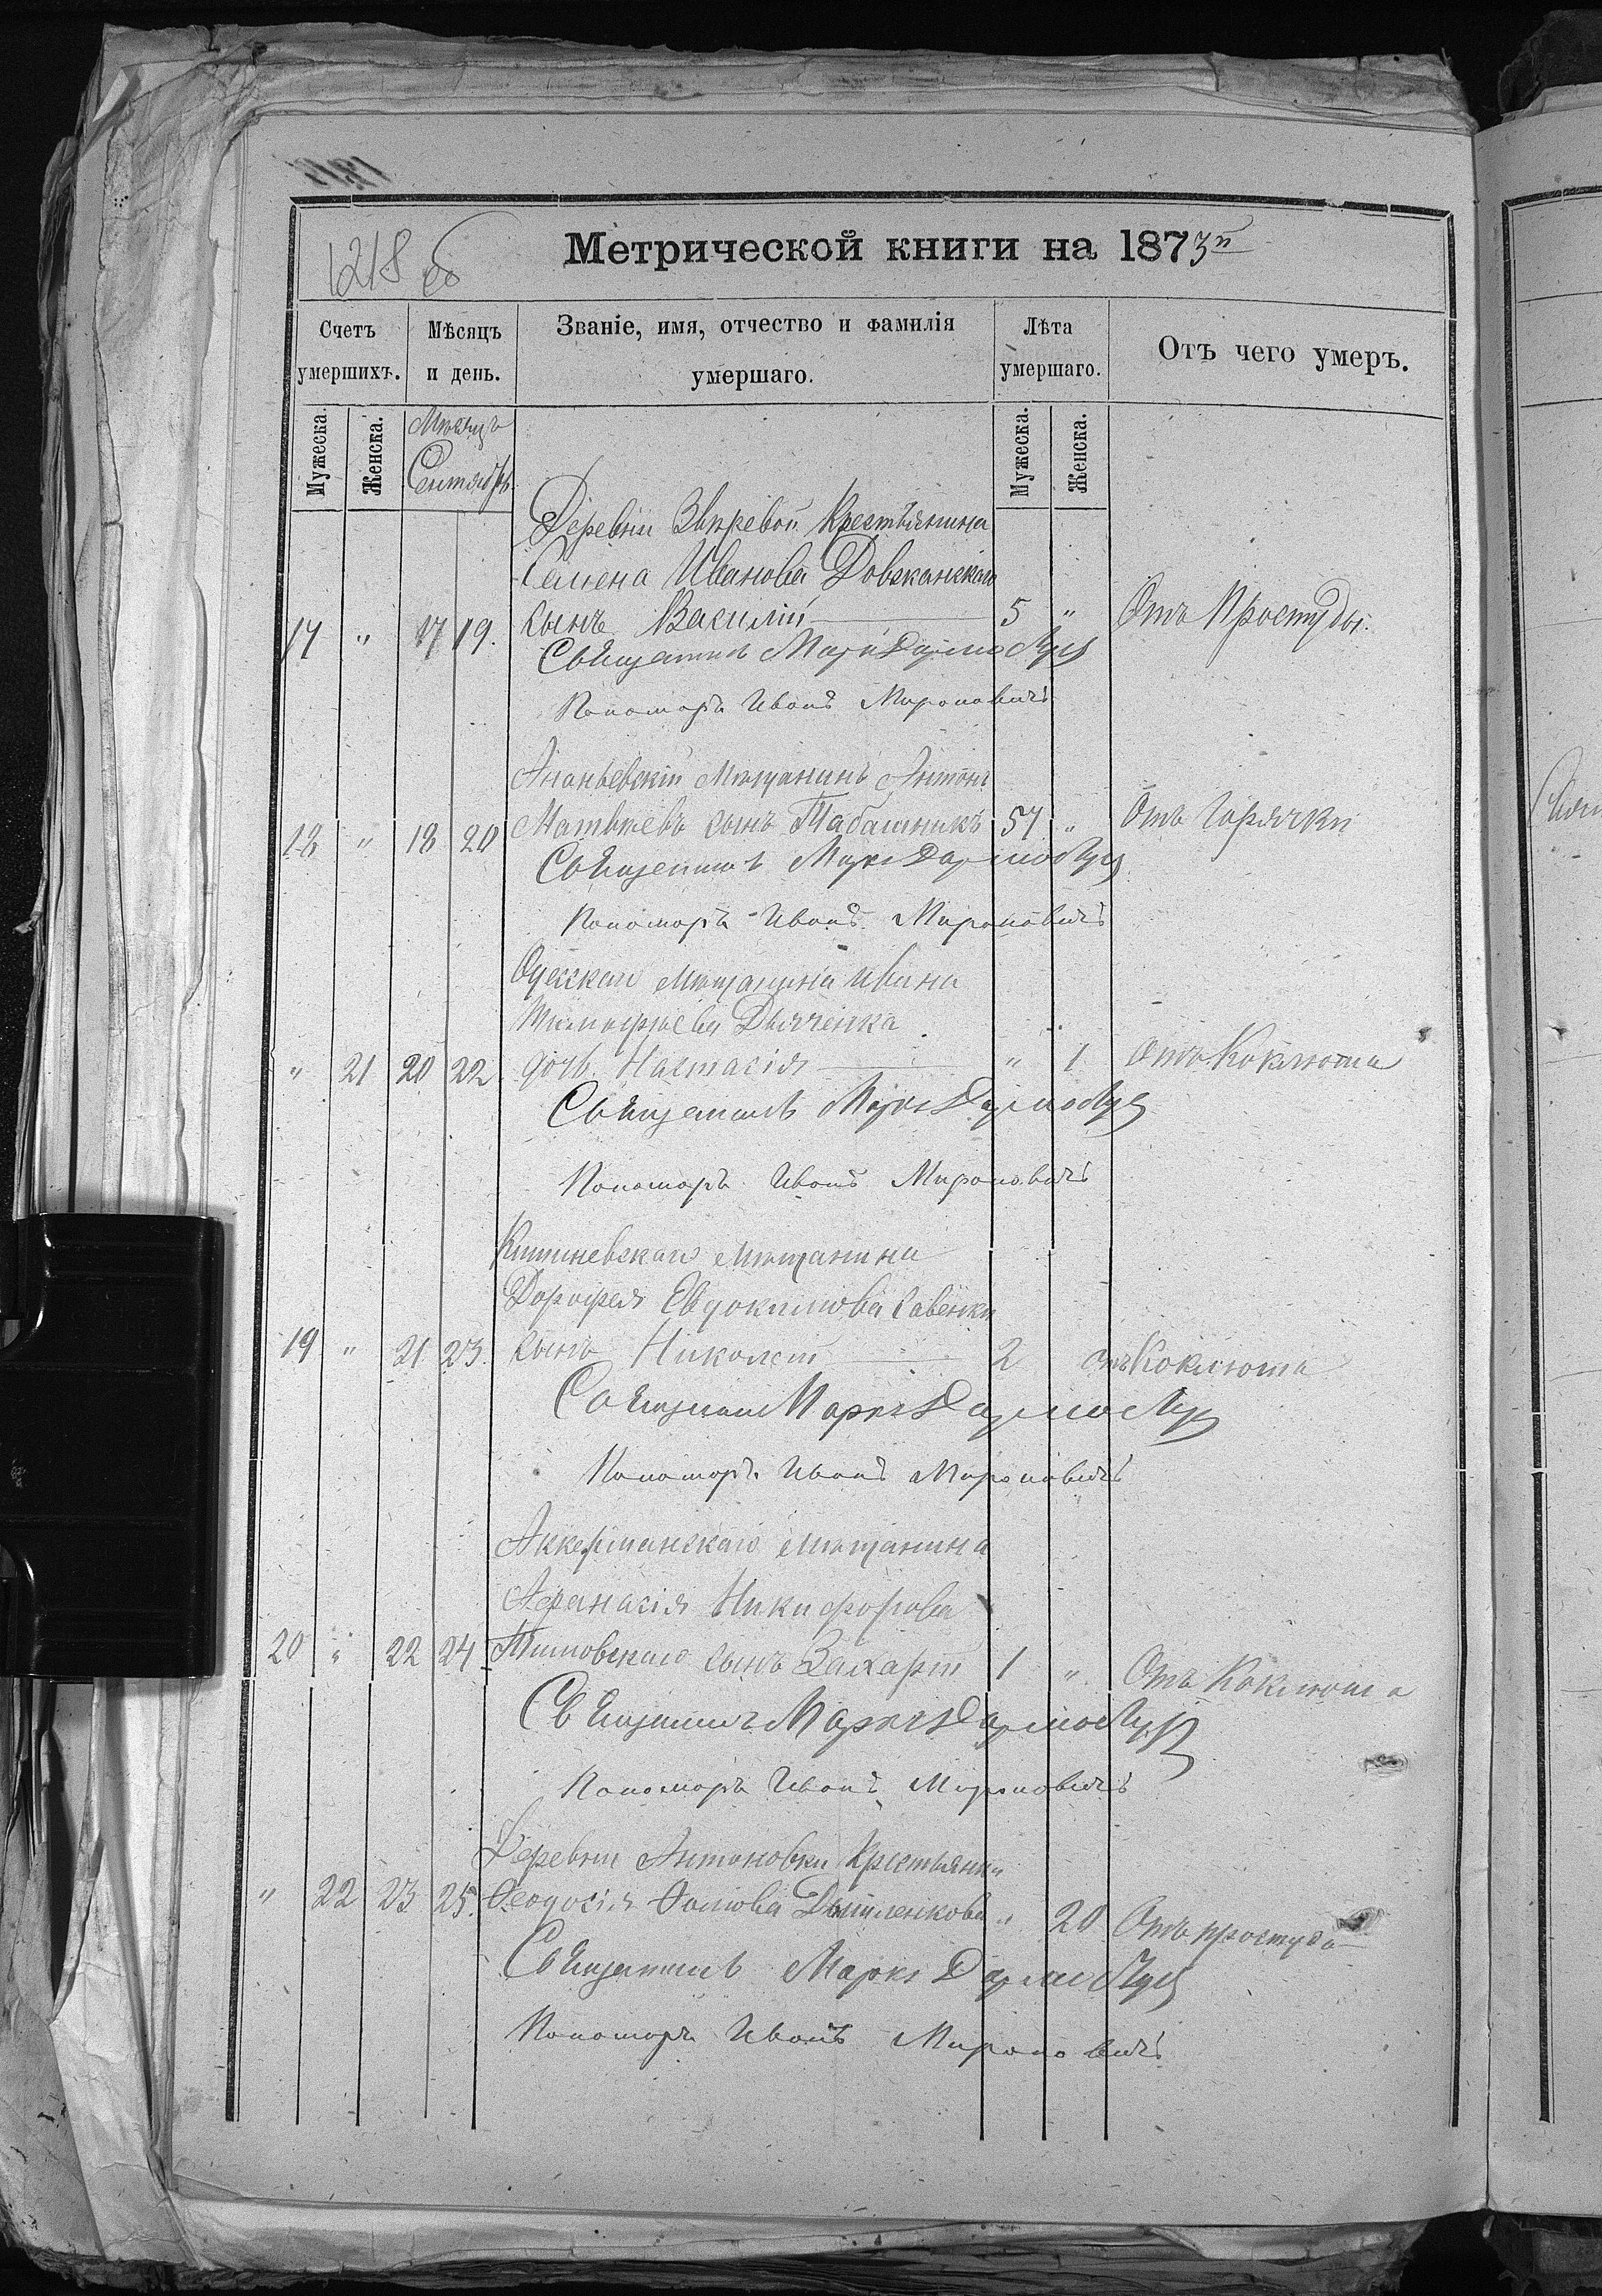 1218 об
Метрической книги на 1873й
Счетъ умершихъ.
Мѣсяцъ и день.
Званіе, имя, отчество и фамилія умершаго.
Лѣта умершаго.
Отъ чего умеръ.
Мужеска.
Женска.
Мѣсяцъ
Сентябрь
Мужеска.
Женска.
Деревни Звѣревой Крестьянина
Семена Иванова Довжанскаго
17 " 17 19. сынъ Василій 5 " Отъ Простуды.
Священникъ Маркъ
Пономарь Иванъ Мироновичъ
Ананьевскій мѣщанинъ Антонъ
18 " 18 20 Матвѣевъ сынъ Табашникъ 57 " Отъ Горячки
Священникъ Маркъ
Пономарь Иванъ Мироновичъ
Одесскаго мѣщанина Ивана
Тимофѣева Дьяченка
" 21 20 22 дочь Настасія " 1 отъ Коклюша
Священникъ Маркъ
Пономарь Иванъ Мироновичъ
Кишиневскаго мѣщанина
Дорофея Евдокимова Савенки
19 " 21 23. сынъ Николай 2 отъ Коклюша
Священникъ Маркъ
Пономарь Иванъ Мироновичъ
Аккерманскаго мѣщанина
Афанасія Никифорова
20 " 22 24 сынъ Захарій 1 " Отъ Коклюша
Священникъ Маркъ
Пономарь Иванъ Мироновичъ
Деревни Антоновки Крестьянка
" 22 23 25. Ѳеодосія Ѳомова " 20 Отъ простуды
Священникъ Маркъ
Пономарь Иванъ Мироновичъ